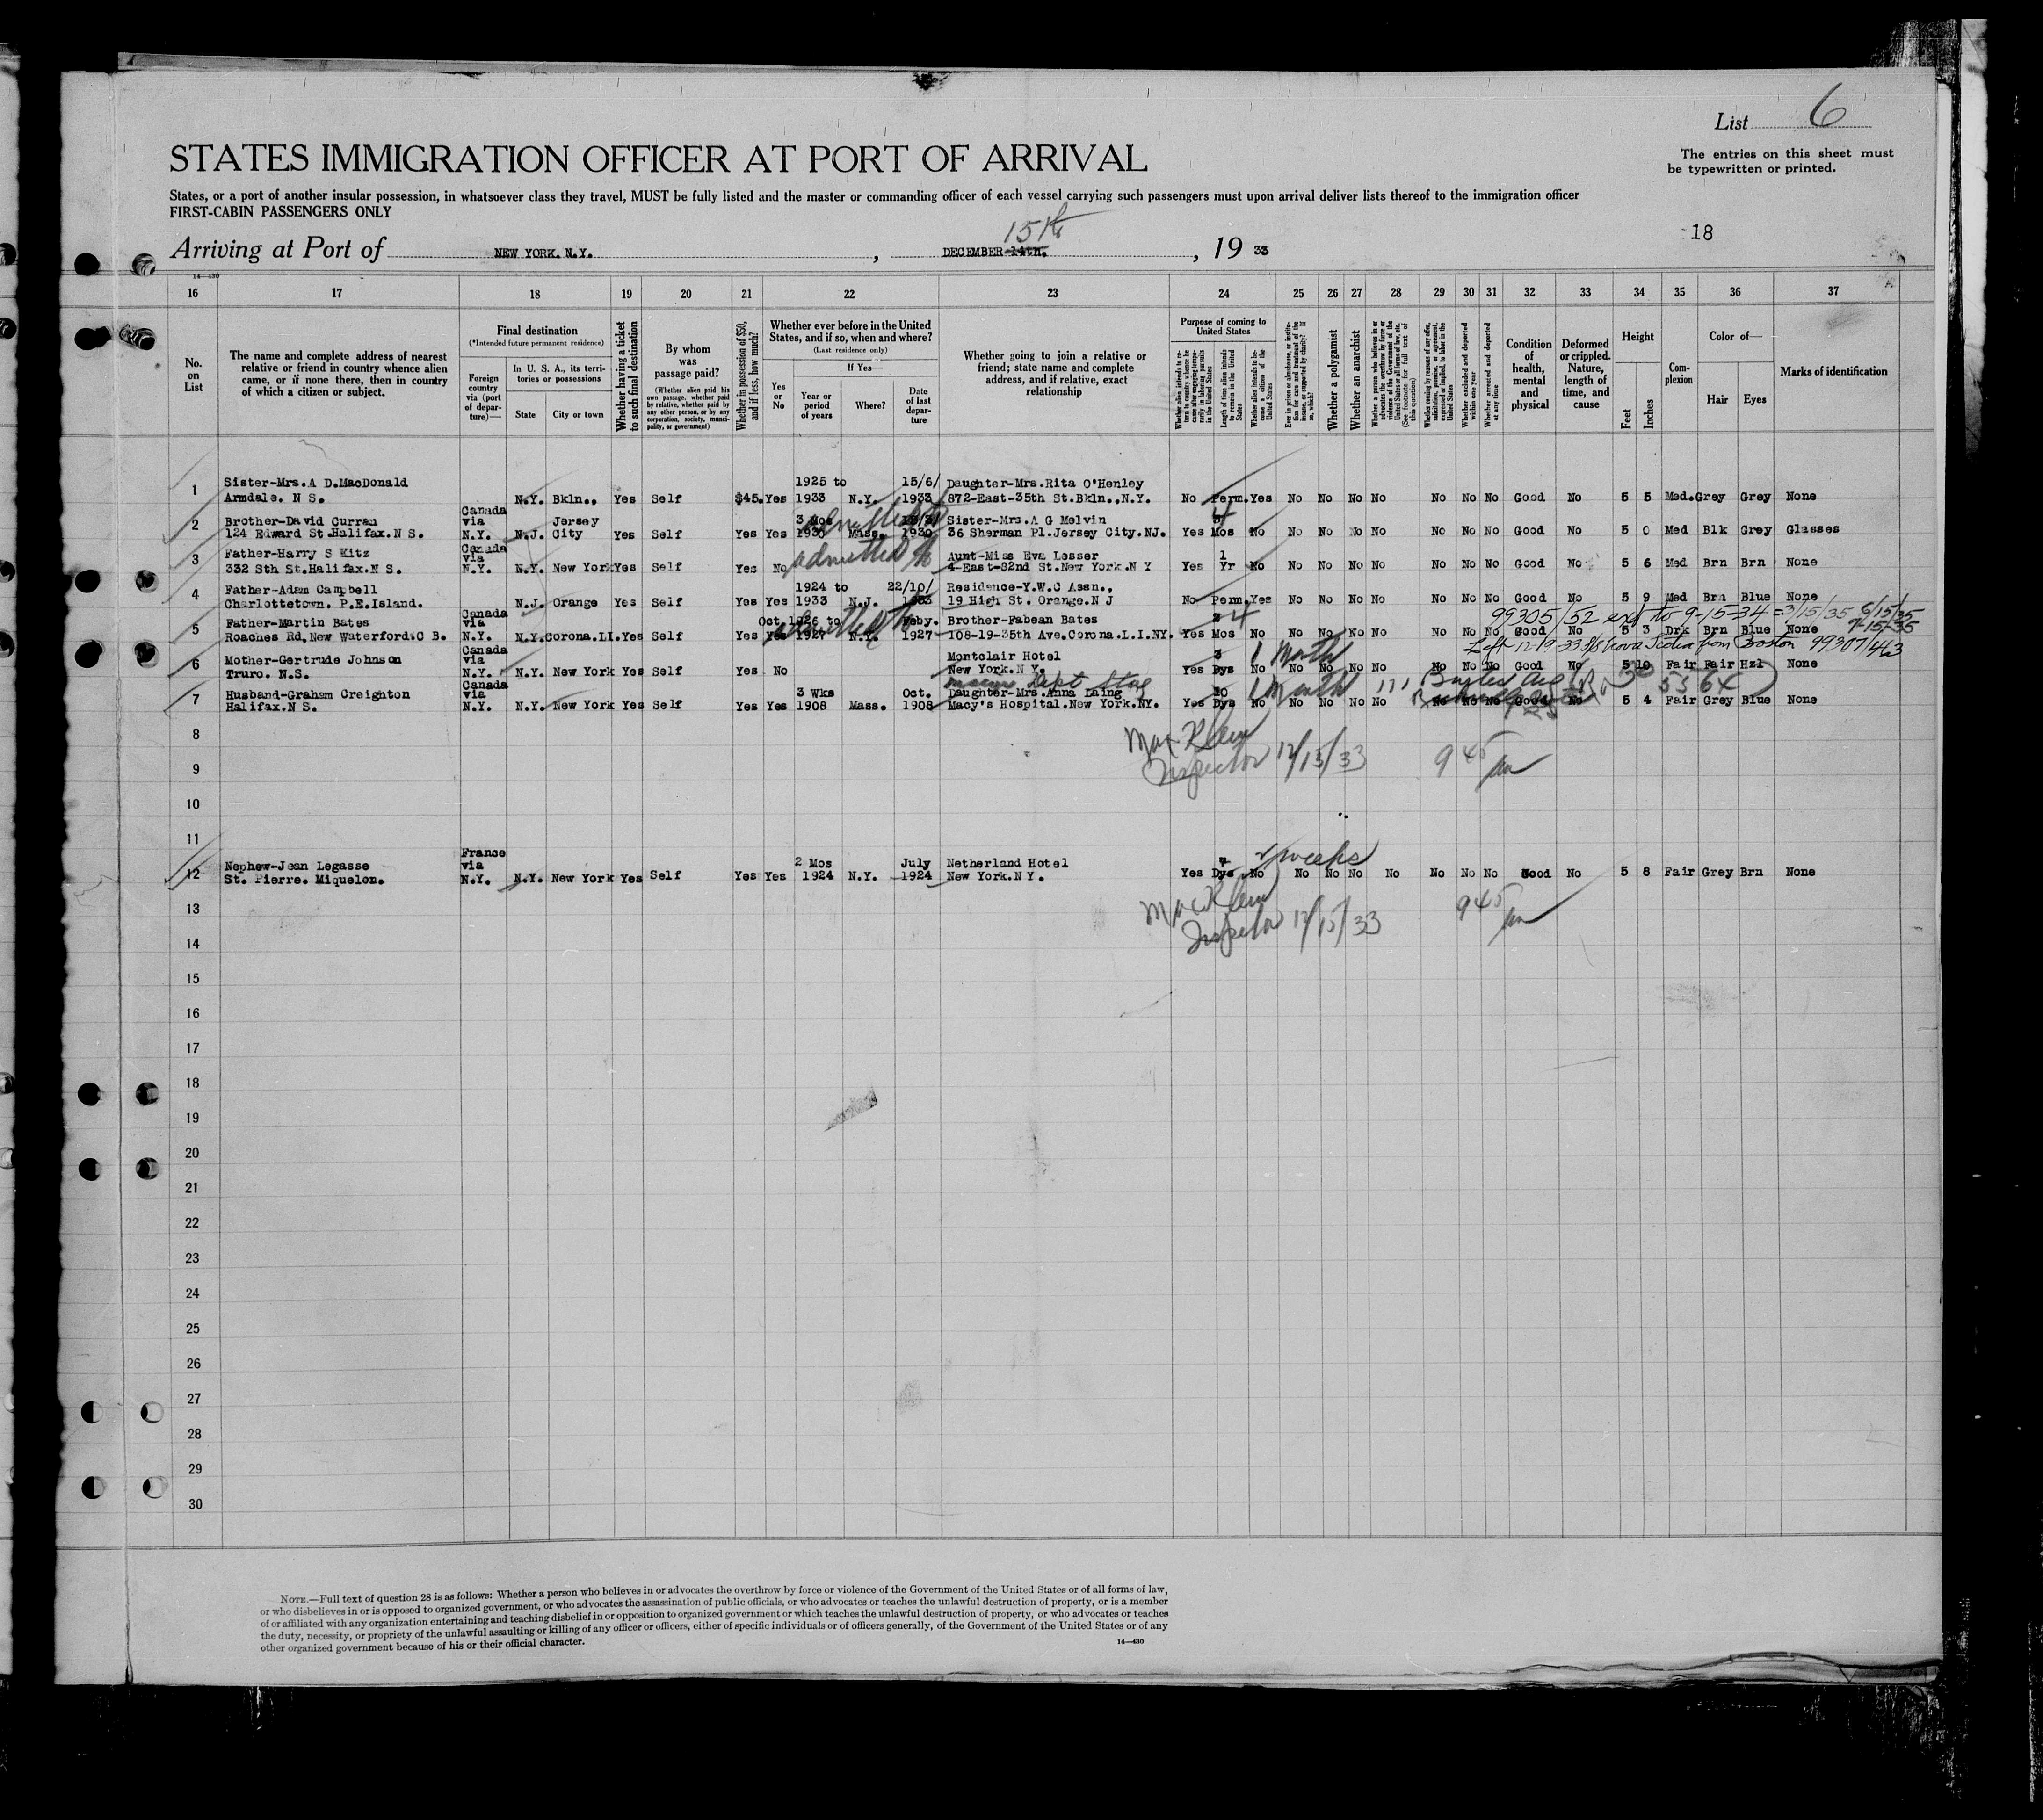 List 6
The entries on this sheet must
be typewritten or printed.
STATES IMMIGRATION OFFICER AT PORT OF ARRIVAL
States, or a port of another insular possession, in whatsoever class they travel, MUST be fully listed and the master or commanding officer of each vessel carrying such passengers must upon arrival deliver lists thereof to the immigration officer
FIRST-CABIN PASSENGERS ONLY
18
15th
Arriving at Port of NEW YORK. N.Y. , DECEMBER 14th. , 19 33
14—430
16 17 18 19 20 21 22 23 24 25 26 27 28 29 30 31 32 33 34 35 36 37
No. on List
The name and complete address of nearest relative or friend in country whence alien came, or if none there, then in country of which a citizen or subject.
Final destination
(*Intended future permanent residence)
Foreign country via (port of departure)—
In U. S. A., its territories or possessions
State
City or town
Whether having a ticket to such final destination
By whom was passage paid?
(Whether alien paid his own passage, whether paid by relative, whether paid by any other person, or by any corporation, society, municipality, or government)
Whether in possession of $50, and if less, how much?
Whether ever before in the United States, and if so, when and where?
(Last residence only)
Yes or No
If Yes—
Year or period of years
Where?
Date of last departure
Whether going to join a relative or friend; state name and complete address, and if relative, exact relationship
Purpose of coming to United States
Whether alien intends to return to country whence he came after engaging temporarily in laboring pursuits in the United States
Length of time alien intends to remain in the United States
Whether alien intends to become a citizen of the United States
Whether a polygamist
Whether an anarchist
(See footnote for full text of this question)
Whether excluded and deported within one year
Whether arrested and deported at any time
Condition of health, mental and physical
Deformed or crippled. Nature, length of time, and cause
Height
Feet
Inches
Complexion
Color of—
Hair
Eyes
Marks of identification
1 Sister-Mrs.A D.MacDonald 1925 to 15/6/ Daughter-Mrs.Rita O'Henley
Armdale. N S. N.Y. Bkln., Yes Self $45. Yes 1933 N.Y. 1933 872-East-35th St.Bkln.,N.Y. No Perm. Yes No No No No No No No Good No 5 5 Med. Grey Grey None
2 Brother-David Curran Canada via Jersey 3 Mos Sister-Mrs.A G Melvin 4
124 Edward St.Halifax.N S. N.Y. N.J. City Yes Self Yes Yes 1930 Mass. 1930 36 Sherman Pl.Jersey City.NJ. Yes Mos No No No No No No No No Good No 5 0 Med Blk Grey Glasses
admitted
3 Father-Harry S Kitz Canada via Aunt-Miss Eva Lesser 1
332 Sth St.Halifax.N S. N.Y. N.Y. New York Yes Self Yes No 4-East-82nd St.New York.N Y Yes Yr No No No No No No No No Good No 5 6 Med Brn Brn None
admitted
4 Father-Adam Campbell 1924 to 22/10/ Residence-Y.W.C Assn.,
Charlottetown. P.E.Island. N.J. Orange Yes Self Yes Yes 1933 N.J. 1933 19 High St. Orange.N J No Perm. Yes No No No No No No No Good No 5 9 Med Brn Blue None
99305/52 ext to 9-15-34 = 3/15/35 6/15/35
7-15-35
5 Father-Martin Bates Canada via Oct.1926 to Feby. Brother-Fabean Bates 4
Roaches Rd,New Waterford.C B. N.Y. N.Y. Corona.LI. Yes Self Yes Yes 1927 N.Y. 1927 108-19-35th Ave.Corona.L.I.NY. Yes Mos No No No No No No No No Good No 5 3 Drk Brn Blue None
Left 12-19-33 S/S Nova Scotia from Boston 99307/463
6 Mother-Gertrude Johnson Canada via Montclair Hotel 3 1 Month
Truro. N.S. N.Y. N.Y. New York Yes Self Yes No New York.N Y. Yes Dys No No No No No No No No Good No 5 10 Fair Fair Hzl None
Dept Store
7 Husband-Graham Creighton Canada via 3 Wks Oct. Daughter-Mrs.Anna Laing 10 1 Month
Halifax.N S. N.Y. N.Y. New York Yes Self Yes Yes 1908 Mass. 1908 Macy's Hospital.New York.NY. Yes Dys No No No No No No No No Good No 5 4 Fair Grey Blue None
8
Max Klein
Inspector 12/15/33 9 45 am
9
10
11
12 Nephew-Jean Legasse France via 2 Mos July Netherland Hotel 2 weeks
St. Pierre. Miquelon. N.Y. N.Y. New York Yes Self Yes Yes 1924 N.Y. 1924 New York.N Y. Yes Dys No No No No No No No No Good No 5 8 Fair Grey Brn None
13
Max Klein
Inspector 12/15/33 9 45 am
14
15
16
17
18
19
20
21
22
23
24
25
26
27
28
29
30
NOTE.—Full text of question 28 is as follows: Whether a person who believes in or advocates the overthrow by force or violence of the Government of the United States or of all forms of law,
or who disbelieves in or is opposed to organized government, or who advocates the assassination of public officials, or who advocates or teaches the unlawful destruction of property, or is a member
of or affiliated with any organization entertaining and teaching disbelief in or opposition to organized government or which teaches the unlawful destruction of property, or who advocates or teaches
the duty, necessity, or propriety of the unlawful assaulting or killing of any officer or officers, either of specific individuals or of officers generally, of the Government of the United States or of any
other organized government because of his or their official character.
14—430